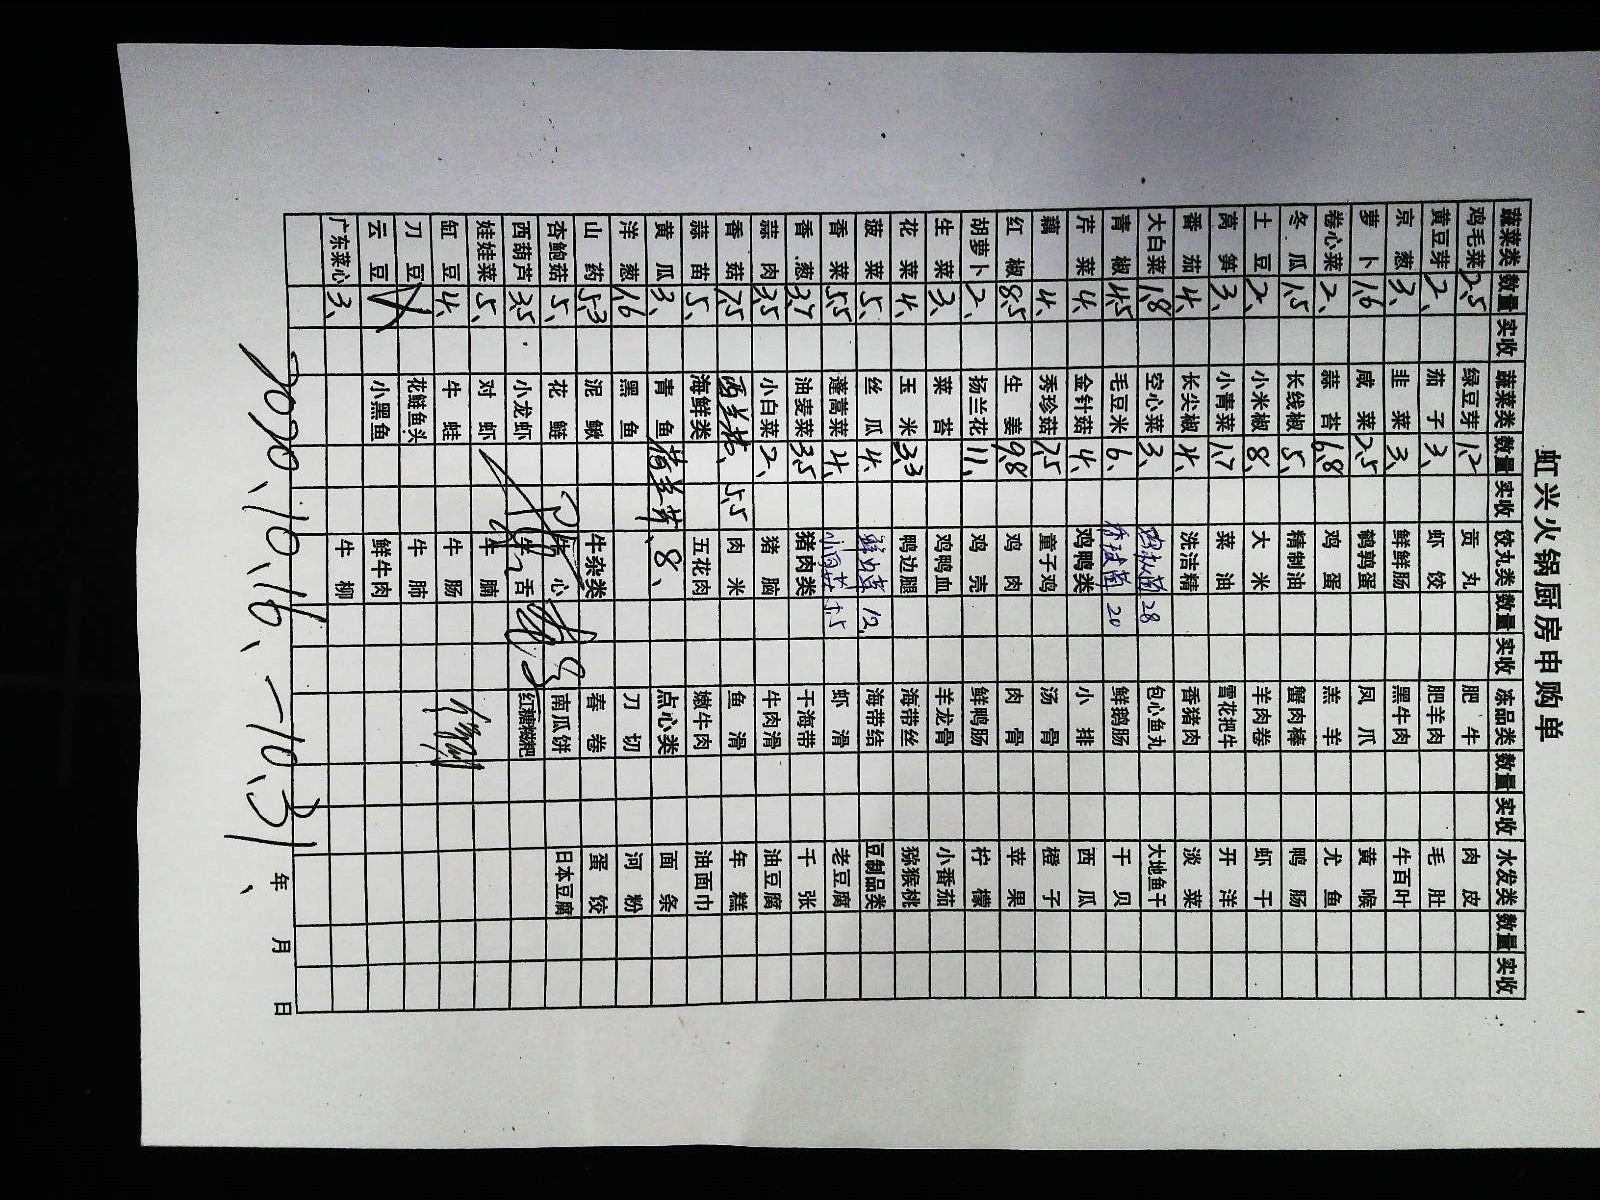 虹兴火锅厨房申购单
蔬菜类 数量 实收 蔬菜类 数量 实收 饺丸类 数量 实收 冻品类 数量 实收 水发类 数量 实收
鸡毛菜 2.5 绿豆芽 1.2 贡丸 肥牛 肉皮
黄豆芽 2、 茄子 3、 虾饺 肥羊肉 毛肚
京葱 3、 韭菜 3、 鲜鲜肠 黑牛肉 牛百叶
萝卜 1.6 咸菜 2.5 鹌鹑蛋 凤爪 黄喉
卷心菜 2、 蒜苔 6.8 鸡蛋 羔羊 尤鱼
冬瓜 1.5 长线椒 5、 精制油 蟹肉棒 鸭肠
土豆 2、 小米椒 8、 大米 羊肉卷 虾干
莴笋 3、 小青菜 1.7 菜油 雪花把牛 开洋
番茄 4、 长尖椒 4、 洗洁精 香猪肉 淡菜
大白菜 1.8 空心菜 3、 28 包心鱼丸 大地鱼干
青椒 4.5 毛豆米 6、 20 鲜鹅肠 干贝
芹菜 4、 金针菇 4、 鸡鸭类 小排 西瓜
藕 4、 秀珍菇 7.5 童子鸡 汤骨 橙子
红椒 8.5 生姜 9.8 鸡肉 肉骨 苹果
胡萝卜 2、 扬兰花 11、 鸡壳 鲜鸭肠 柠檬
生菜 3、 菜苔 鸡鸭血 羊龙骨 小番茄
花菜 4、 玉米 3.3 鸭边腿 海带丝 猕猴桃
菠菜 5、 丝瓜 4、 12、 海带结 豆制品类
香菜 5.5 蓬蒿菜 4、 5.5 虾滑 老豆腐
香葱 油麦菜 3.5 猪肉类 干海带 千张
蒜肉 3.5 小白菜 2、 猪脑 牛肉滑 油豆腐
香菇 7.5 西兰花、 5.5 肉米 鱼滑 年糕
蒜苗 5、 海鲜类 五花肉 嫩牛肉 油面巾
黄瓜 3、 青鱼 8、 点心类 面条
洋葱 1.6 黑鱼 刀切 河粉
山药 5.3 泥鳅 牛杂类 春卷 蛋饺
杏鲍菇 5、 花鲢 牛心 南瓜饼 日本豆腐
西葫芦 3.5 小龙虾 牛舌 红糖糍粑
娃娃菜 5、 对虾 牛腩
缸豆 4、 牛蛙 牛肠
刀豆 花鲢鱼头 牛肺
云豆 小黑鱼 鲜牛肉
广东菜心 3、 牛柳
2020、10、16、—10、31、
年 月 日